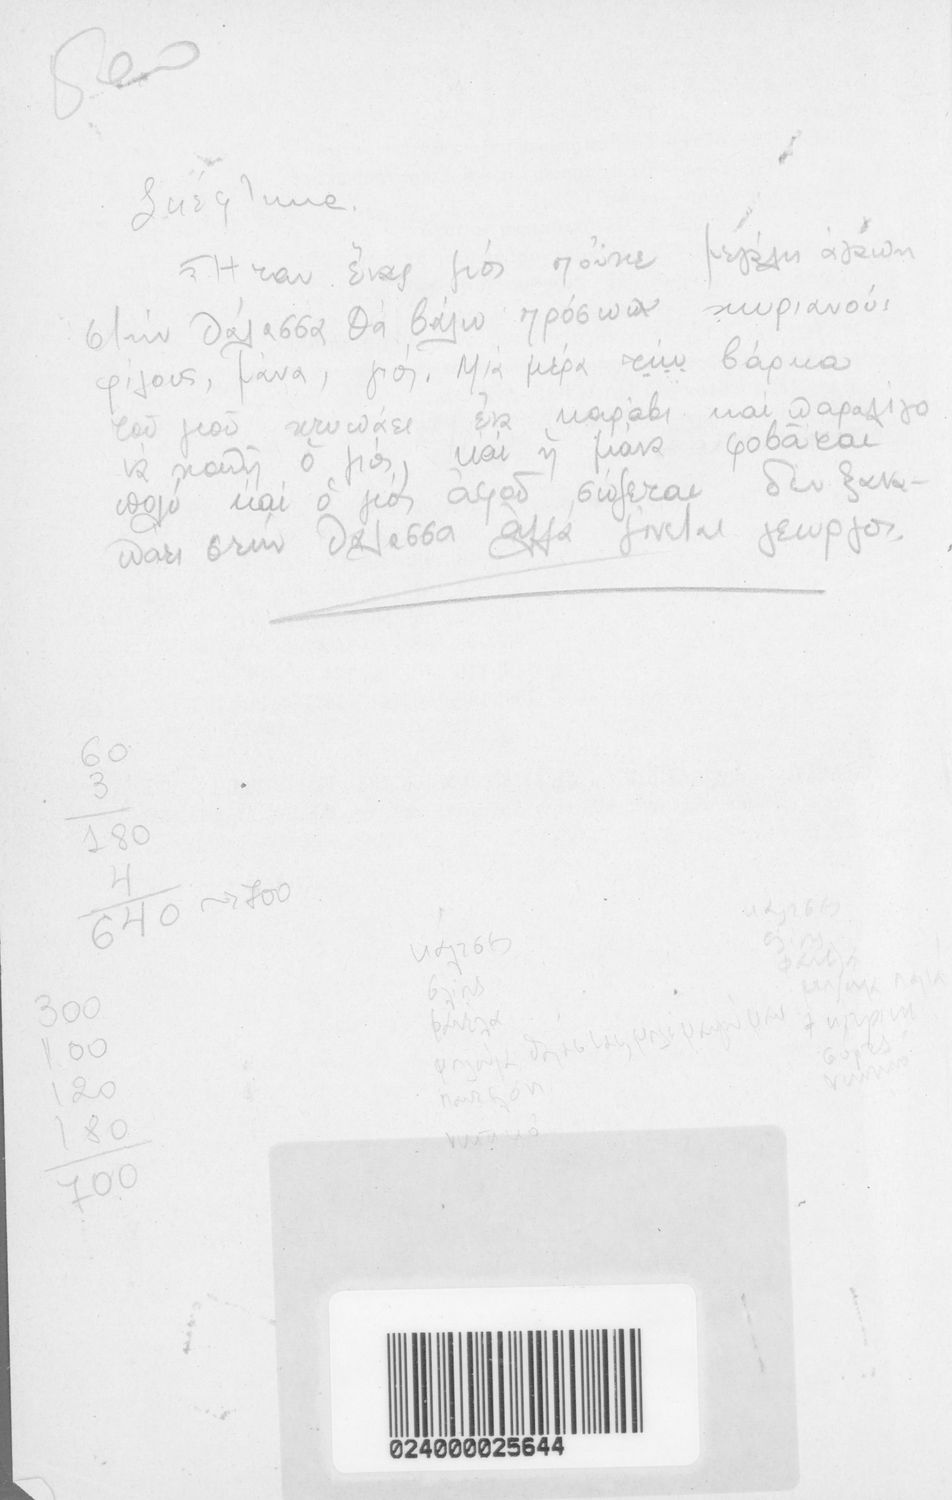 Σκέφτηκα.
Ἦταν ἕνας γιός πούχε μεγάλη ἀγάπη
στήν θάλασσα θά βάλω πρόσωπα χωριανούς
φίλους, μάνα, γιός. Μιά μέρα τήν βάρκα
τοῦ γιοῦ χτυπάει ἕνα καράβι καί παραλίγο
νά χαθῆ ὁ γιός, καί ἡ μάνα φοβᾶται
πολύ καί ὁ γιός ἀφοῦ σώζεται δέν ξανα-
πάει στήν θάλασσα ἀλλά γίνεται γεωργός.
60
3
180
4
640 → 700
300
100
120
180
700
κάλτσες
φανέλα
κάλτσες
φανέλα
024000025644